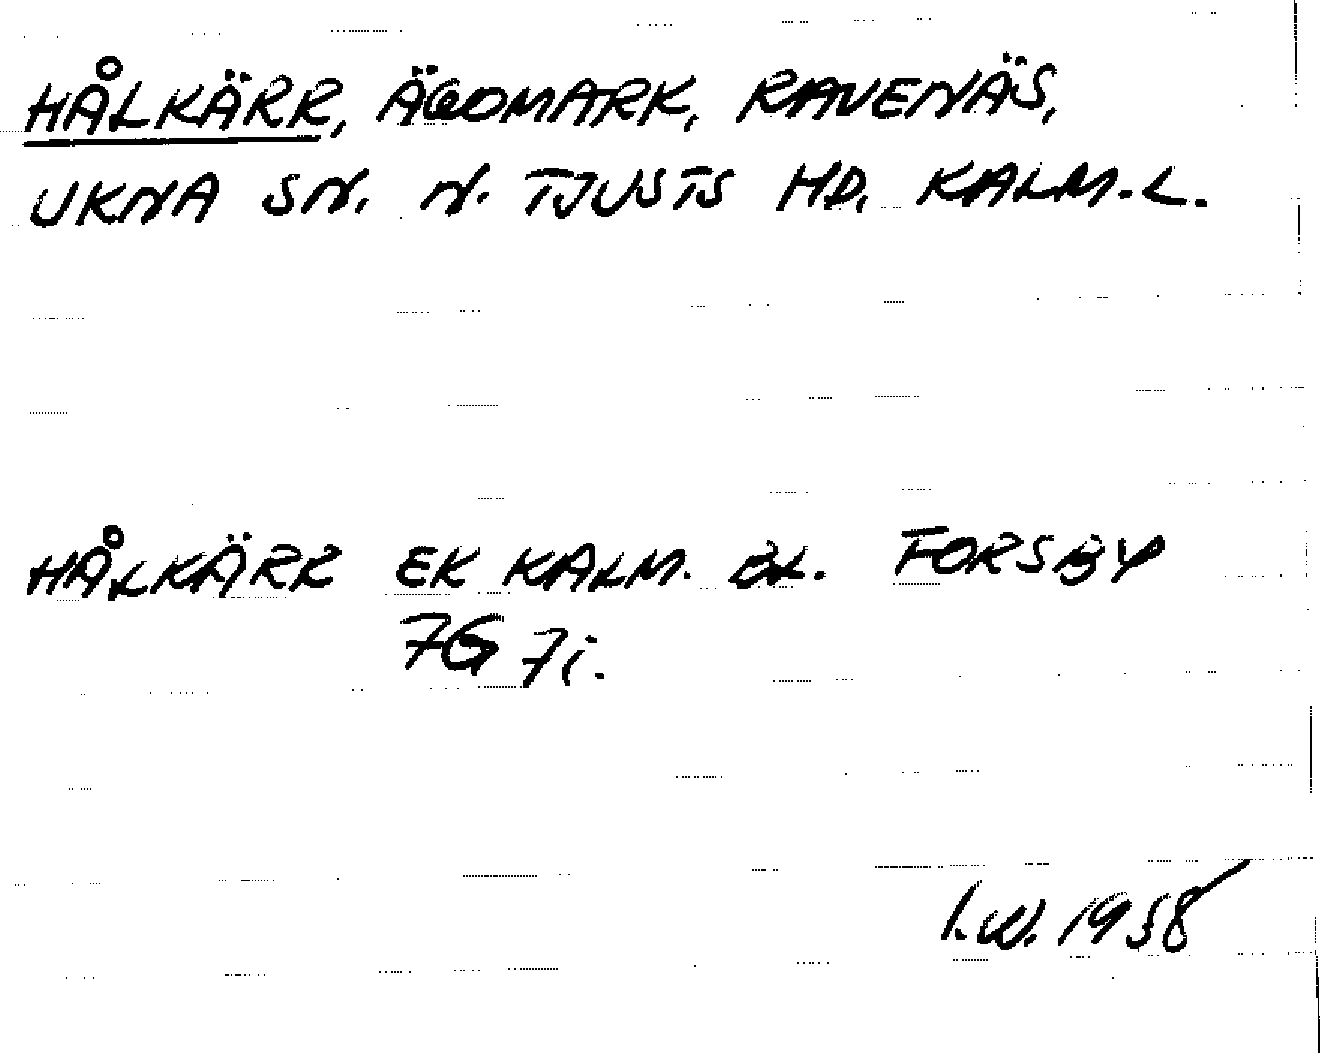 HÅLKÄRR, ÄGOMARK, RAVENÄS,
UKNA SN. N. TJUSTS HD. KALM.L.
HÅLKÄRR EK KALM. BL. FORSBY
7G 7i.
I.W. 1958